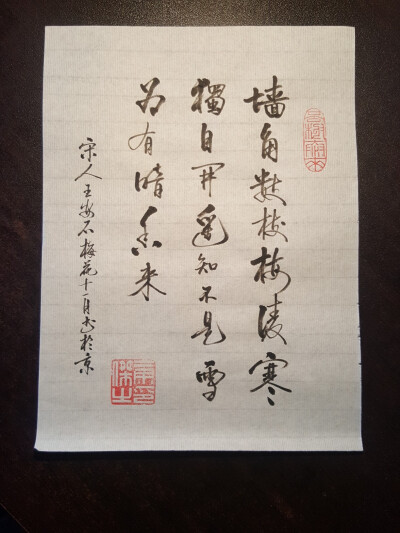 墙角数枝梅凌寒
獨自开遥知不是雪
为有暗香来
宋人王安石梅花十一月书於京